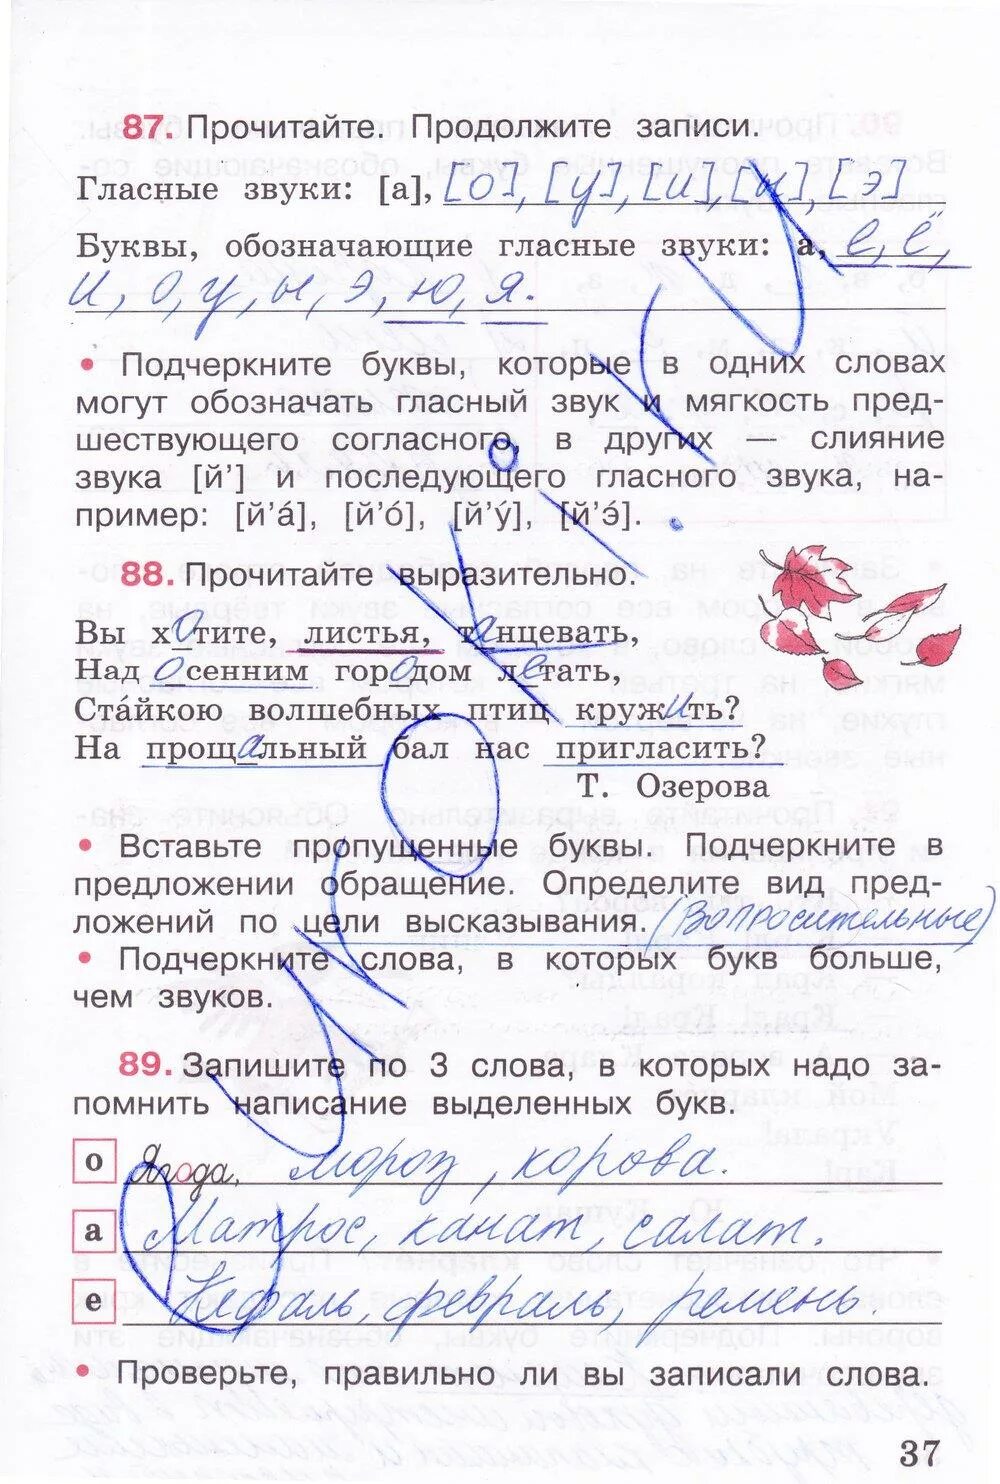 87. Прочитайте. Продолжите записи.
Гласные звуки: [а], [о], [у], [и], [ы], [э]
Буквы, обозначающие гласные звуки: а, е, ё,
и, о, у, ы, э, ю, я.
• Подчеркните буквы, которые в одних словах
могут обозначать гласный звук и мягкость пред-
шествующего согласного, в других — слияние
звука [й’] и последующего гласного звука, на-
пример: [й’а́], [й’о́], [й’у́], [й’э́].
88. Прочитайте выразительно.
Вы хотите, листья, танцевать,
Над осенним городом летать,
Ста́йкою волшебных птиц кружить?
На прощальный бал нас пригласить?
Т. Озерова
• Вставьте пропущенные буквы. Подчеркните в
предложении обращение. Определите вид пред-
ложений по цели высказывания. (Вопросительные)
• Подчеркните слова, в которых букв больше,
чем звуков.
89. Запишите по 3 слова, в которых надо за-
помнить написание выделенных букв.
о Ягода, мороз, корова.
а Матрос, канат, салат.
е февраль, ремень.
• Проверьте, правильно ли вы записали слова.
37